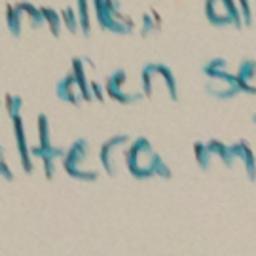 mille,, al
dien se
altera m